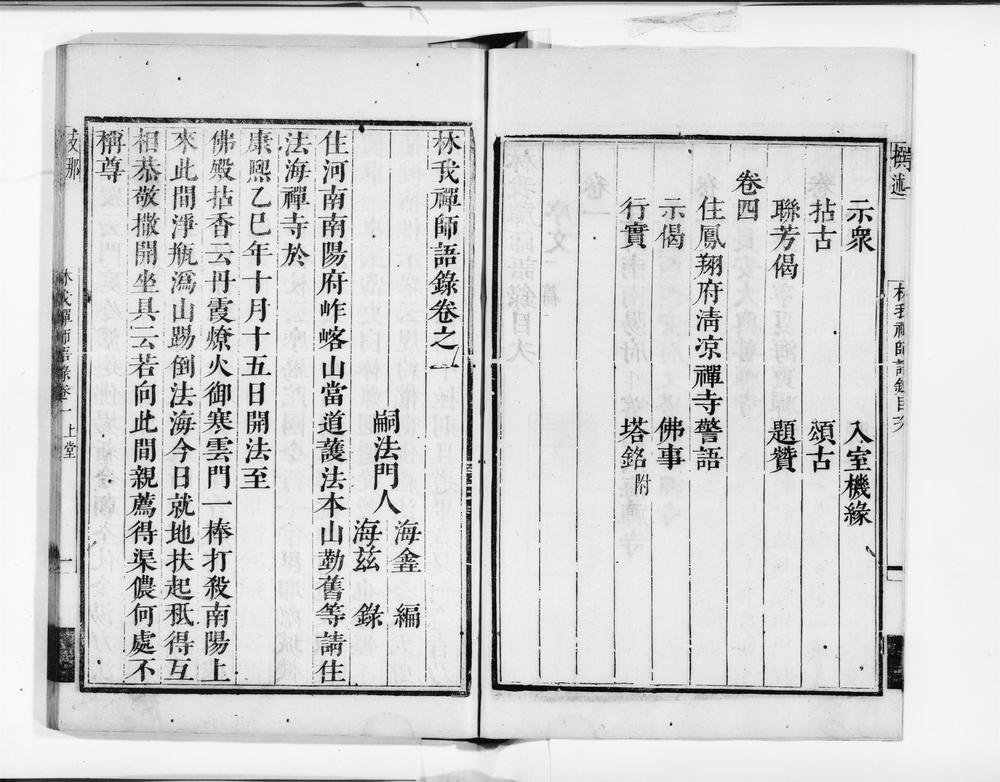 撰述
林我禪師語錄目次
示衆　入室機緣
拈古　頌古
聯芳偈　題贊
卷四
住鳳翔府淸凉禪寺警語
示偈　佛事
行實　塔銘附
林我禪師語錄卷之一
嗣法門人
海鑫　編
海兹　錄
住河南南陽府岞峈山當道護法本山勤舊等請住
法海禪寺於
康熙乙巳年十月十五日開法至
佛殿拈香云丹霞燎火御寒雲門一棒打殺南陽上
來此間淨瓶潙山踢倒法海今日就地扶起秖得互
相恭敬撒開坐具云若向此間親薦得渠儂何處不
稱尊
林我禪師語錄卷一　上堂　一